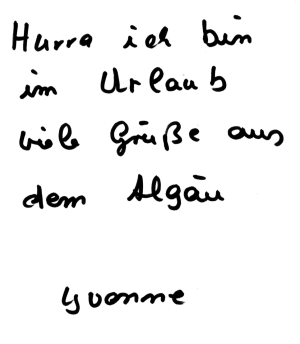 Hurra ich bin
im Urlaub
viele Grüße aus
dem Algäu
Yvonne